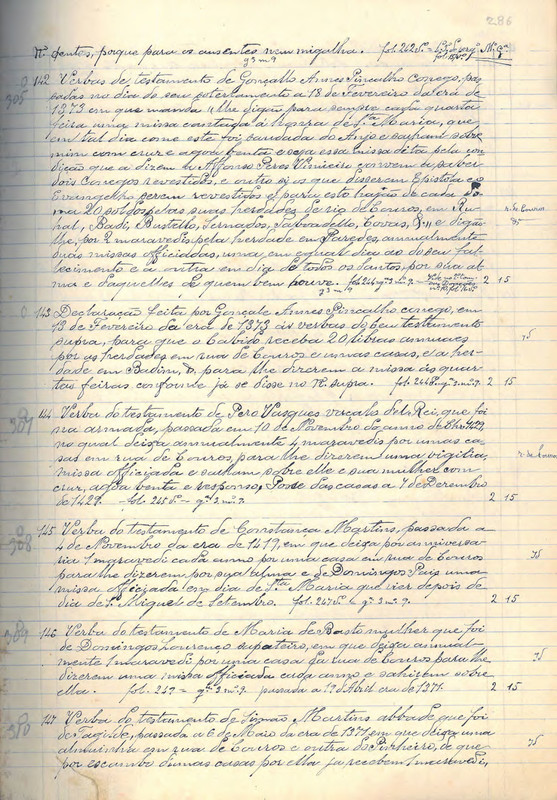 286
N. dentes, porque para os ausentes nem migalha. fol. 242 v.
g 3 m 9
142 Verbas de testamento de Gonçallo Annes Pincalho Conego, pas-
sadas no dia do seu a 18 de Fevereiro da era de
1373 em que manda lhe digão para sempre cada quarta
feira uma missa cantada á honra de Sta Maria, que
em tal dia como este foi saudada do Anjo e saham sobre
mim com cruz e agoa benta e seja essa missa dita pela con-
dição que a dizem a Affonso Peres Vimieiro convem a saber
dois Conegos revestidos, e outro si os que disserem Epistola e o
Evangelho serem revestidos e para esto hajão de cada
20 soldos pelas suas herdades de rio de Couros, em Ru-
Badi, Bustello, Sernados, Taboadello, Covas, & e digão-
lhe, por 2 maravedis pela herdade em Paredes, annualmente
duas missas officiadas, uma em egual dia ao do seu fal-
lecimento e a outra em dia de todos os Santos, por sua al-
ma e daquelles de quem bem houve. fol. 244 g 3 m 9. 2 15
g 3 m 9
r. de Couros
75
143 Declaração feita por Gonçalo Annes Pincalho conego, em
18 de Fevereiro da era de 1373 ás verbas do seu testamento
supra, para que o Cabido receba 20 libras annuaes
por as herdades em rua de Couros e umas casas, e a her-
dade em Badim, &, para lhe dizerem a missa ás quar-
tas feiras conforme já se disse no N. supra. fol. 244 g. 3 m. 9. 2 15
75
144 Verba do testamento de Pero Vasques vassalo del Rei, que foi
na armada, passada em 10 de Novembro do anno de 1429,
no qual deixa annualmente 4 maravedis por umas ca-
sas em rua de Couros, para lhe dizerem uma vigilia,
missa officiada e saham sobre elle e sua mulher com
cruz, agoa benta e responso, Posse das casas a 7 de Dezembro
de 1429. fol. 245 v. = g. 3 m. 9. 2 15
r. de Couros
145 Verba do testamento de Constança Martins, passada a
4 de Novembro da era de 1419, em que deixa por anniversa-
rio 1 maravedi cada anno por uma casa em rua de Couros
para lhe dizerem por sua alma e de Domingos Pais uma
missa officiada em dia de Sta Maria que vier depois de
dia de S. Miguel de Setembro. fol. 247 v. = g. 3 m. 9. 2 15
75
146 Verba do testamento de Maria de Basto mulher que foi
de Domingos Lourenço sapateiro, em que deixa annual-
mente 1 maravedi por uma casa da rua de Couros para lhe
dizerem uma missa officiada cada anno e sahirem sobre
ella. fol. 249 = g. 3 m. 9. passada a 19 Abril era de 1377. 2 15
75
147 Verba do testamento de Simão Martins abbade que foi
de Tagilde, passada a 6 de Maio da era de 1371 em que deixa uma
almuinha em rua de Couros e outra do Pinheiro, de que
por escambo dumas casas por ella já recebem 1 maravedi,
75